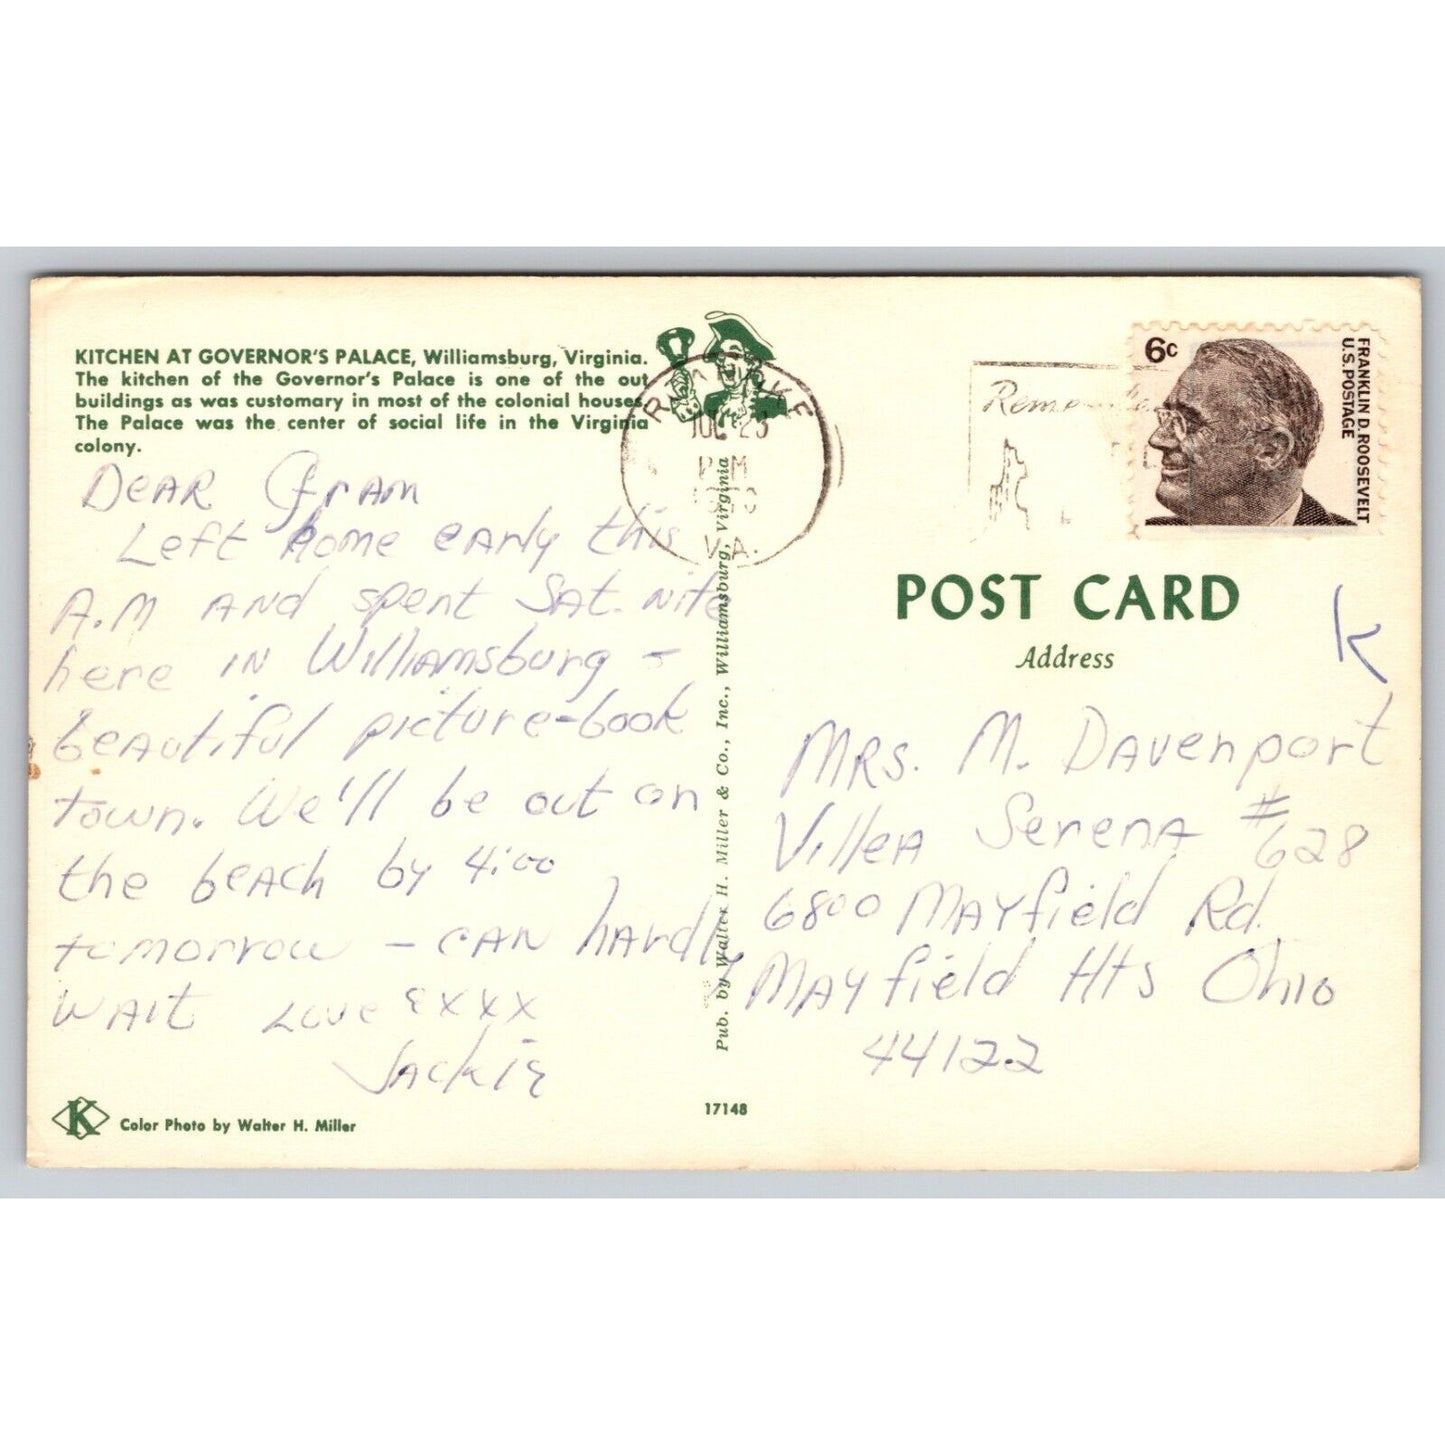 KITCHEN AT GOVERNOR'S PALACE, Williamsburg, Virginia.
The kitchen of the Governor's Palace is one of the out
buildings as was customary in most of the colonial houses.
The Palace was the center of social life in the Virginia
colony.
DEAR Gram
Left home early this
A.M AND spent Sat. nite
here IN Williamsburg -
beautiful picture-book
town. We'll be out on
the beach by 4:00
tomorrow - CAN hardly
WAIT Love & XXX
Jackie
K
Color Photo by Walter H. Miller
17148
Pub. by Walter H. Miller & Co., Inc., Williamsburg, Virginia
JUL 25
PM
VA.
6c
FRANKLIN D. ROOSEVELT
U.S. POSTAGE
POST CARD
Address
K
MRS. M. Davenport
Villea Serena #628
6800 Mayfield Rd.
Mayfield Hts Ohio
44122